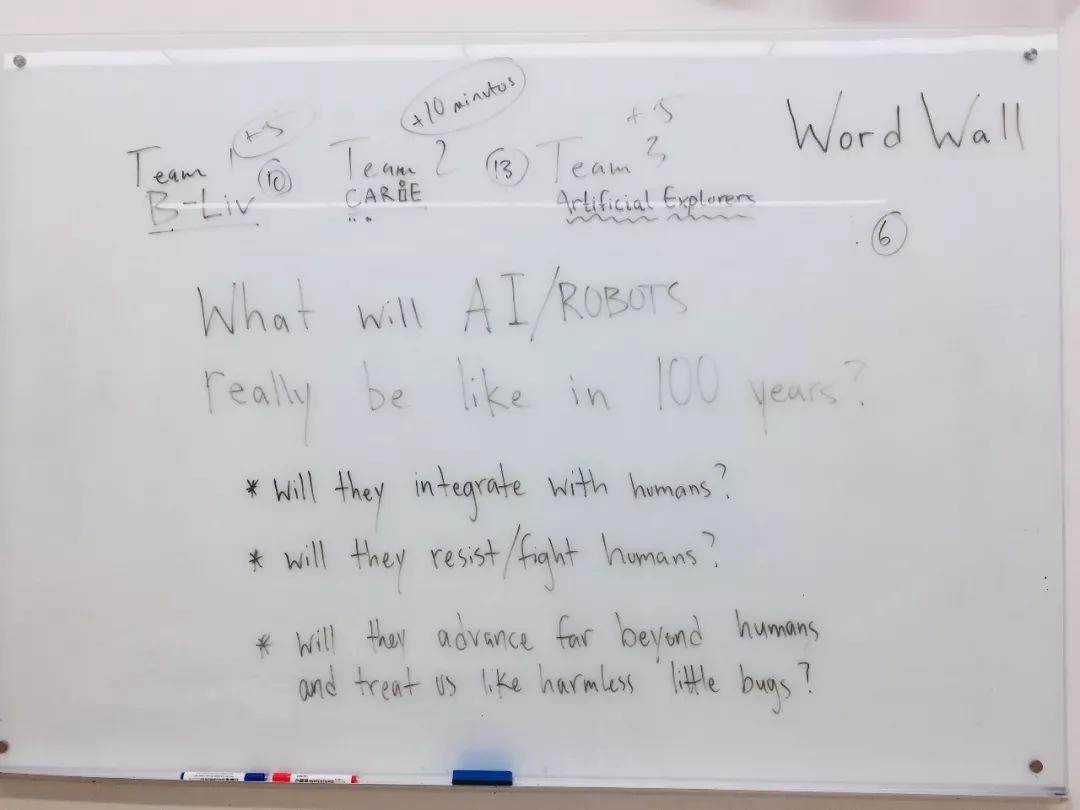 +5 +10 minutos +5 Word Wall
Team 1 10 Team 2 13 Team 3
B-Liv Artificial Explorers
6
What will AI/ROBOTS
really be like in 100 years?
* Will they integrate with humans?
* Will they resist/fight humans?
* Will they advance far beyond humans
and treat us like harmless little bugs?